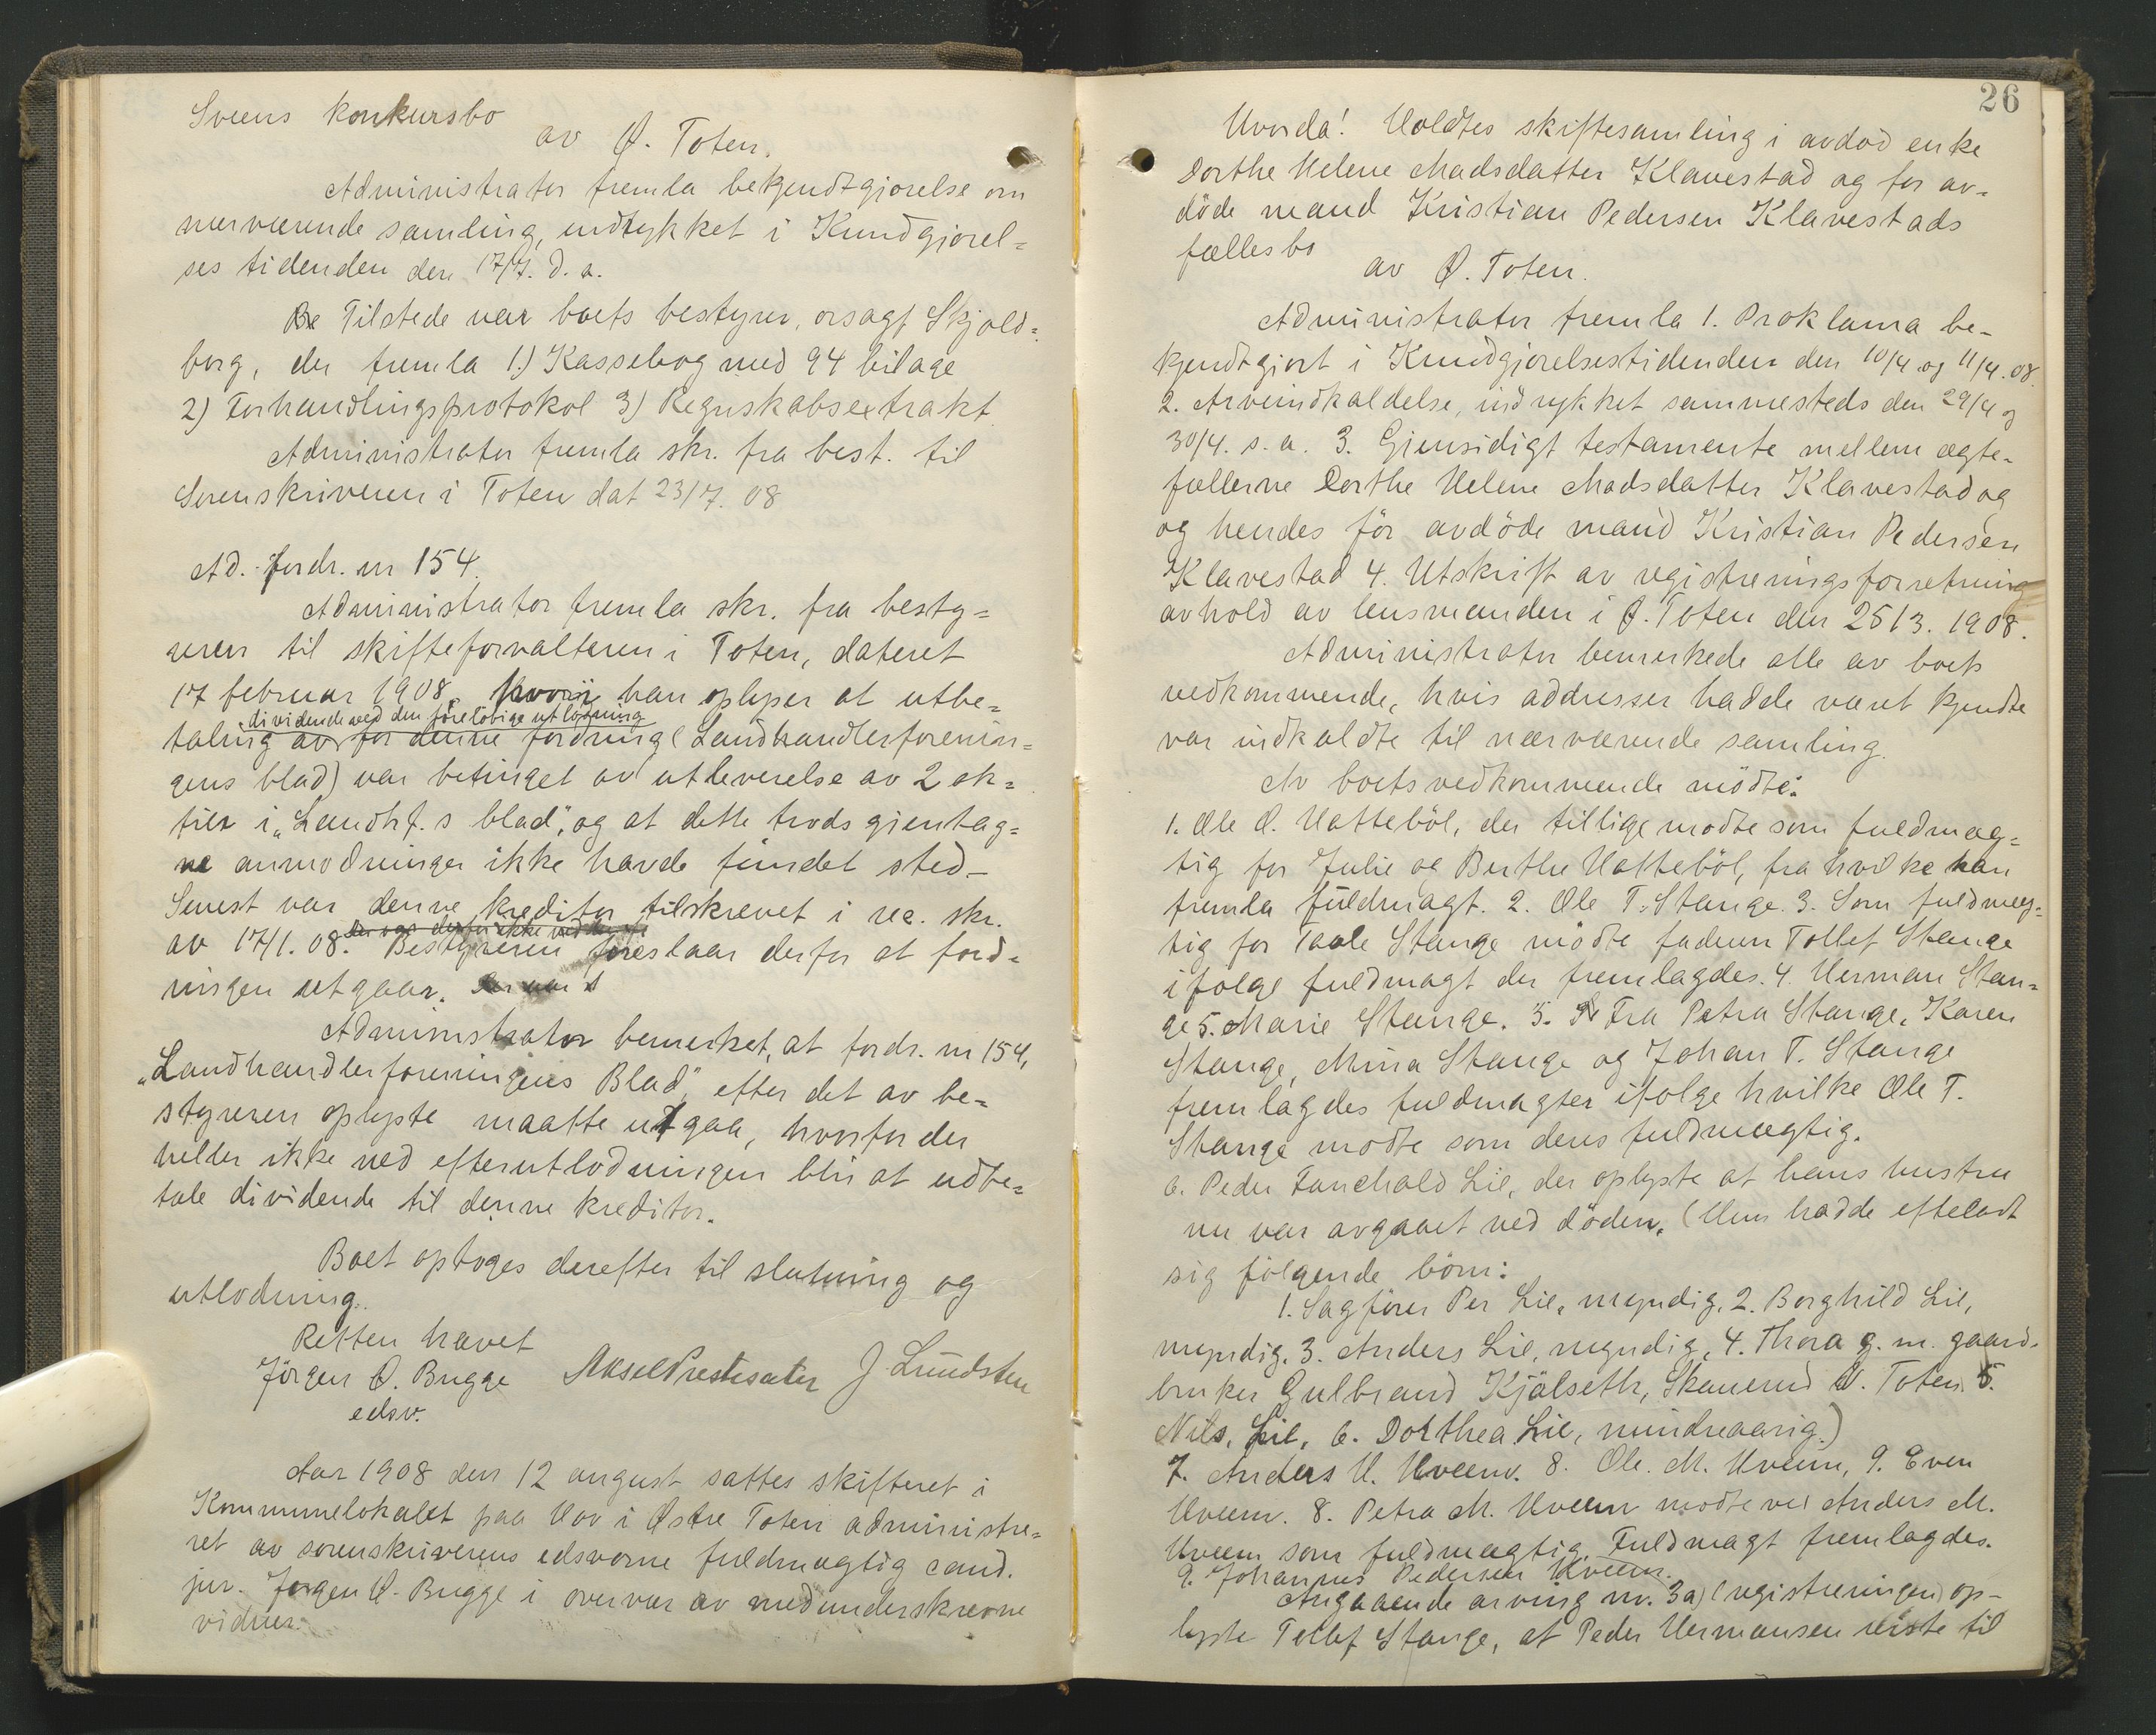 Sveens konkursbo
av Ø. Toten.
Administrator fremla bekjendtgjørelse om
nærværende samling, indrykket i Kundgjørel=
ses tidenden den 17/7. d. a.
Tilstede var boets bestyrer, orsagf Skjold=
borg, der fremla 1.) Kassebog med 94 bilage
2) Forhandlingsprotokol 3) Regnskabsextrakt
Administrator fremla skr. fra best. til
Sorenskriveren i Toten dat 23/7. 08
Ad. fordr. nr 154.
Administrator fremla skr. fra besty=
reren til skifteforvalteren i Toten, dateret
17 februar 1908, hvori han oplyser at utbe=
dividende ved den foreløbige utlodning
taling av for denne fordring (Landhandlerforenin=
gens blad) var betinget av utleverelse av 2 ak=
tier i „Landhf.s blad", og at dette trods gjentag=
ne anmodninger ikke havde fundet sted –
Senest var denne kreditor tilskrevet i rec. skr.
Der var derfor ikke ved
av 17/1. 08. Bestyreren foreslaar derfor at ford=
ringen utgaar. Der var
Administrator bemerket, at fordr. nr 154,
„Landhandlerforeningens Blad", efter det av be=
styreren oplyste maatte utgaa, hvorfor der
heller ikke ved efterutlodningen blir at udbe=
tale dividende til denne kreditor.
Boet optoges derefter til slutning og
utlodning.
Retten hævet
Jørgen Ø. Bugge Aksel Prestesæter J. Lundsten
edsv.
Aar 1908 den 12 august sattes skifteret i
Kommunelokalet paa Hov i Østre Toten administre=
ret av sorenskriverens edsvorne fuldmægtig cand.
jur. Jørgen Ø. Bugge i overvær av medunderskrevne
vidner.
26
Hvorda! Holdtes skiftesamling i avdød enke
Dorthe Helene Madsdatter Klavestad og før av=
døde mand Kristian Pedersen Klavestads
fællesbo
av Ø. Toten.
Administrator fremla 1. Proklama be-
kjendtgjort i Kundgjørelsestidenden den 10/4 og 11/4. 08.
2. Arveindkaldelse, indrykket sammesteds den 29/4 og
30/4. s. a. 3. Gjensidigt testamente mellem ægte-
fællerne Dorthe Helene Madsdatter Klavestad og
og hendes før avdøde mand Kristian Pedersen
Klavestad 4. Utskrift av registreringsforretning
avhold av lensmanden i Ø. Toten den 25/3. 1908.
Administrator bemerkede alle av boets
vedkommende, hvis addresser hadde været kjendte
var indkaldte til nærværende samling.
Av boets vedkommende mødte:
1. Ole O. Hattebøl, der tillige mødte som fuldmæg=
tig for Julie og Berthe Hattebøl, fra hvilke han
fremla fuldmagt. 2. Ole T. Stange. 3. Som fuldmæg=
tig for Taale Stange mødte faderen Tollef Stange
ifølge fuldmagt der fremlagdes. 4. Herman Stan=
ge 5. Marie Stange. 5. Fra Petra Stange, Karen
Stange, Mina Stange og Johan T. Stange
fremlagdes fuldmagter ifølge hvilke Ole T.
Stange mødte som dens fuldmægtig.
6. Peder Fauchald Lie, der oplyste at hans hustru
nu var avgaaet ved døden. (Hun hadde efterladt
sig følgende børn:
1. Sagfører Per Lie, myndig, 2. Borghild Lie,
myndig. 3. Anders Lie, myndig, 4. Thora g. m. gaard-
bruker Gulbrand Kjølseth, Skaurud V. Toten 5.
Nils, Lie, 6. Dorthea Lie, mindreaarig.)
7. Anders H. Hveem. 8. Ole. M. Hveem, 9. Even
Hveem. 8. Petra M. Hveem mødte ved Anders M.
Hveem som fuldmægtig. Fuldmagt fremlagdes.
9. Johannes Pedersen Hveem.
Angaaende arving nr. 3a) (registreringen) op-
lyste Tollef Stange, at Peder Hermansen reiste til